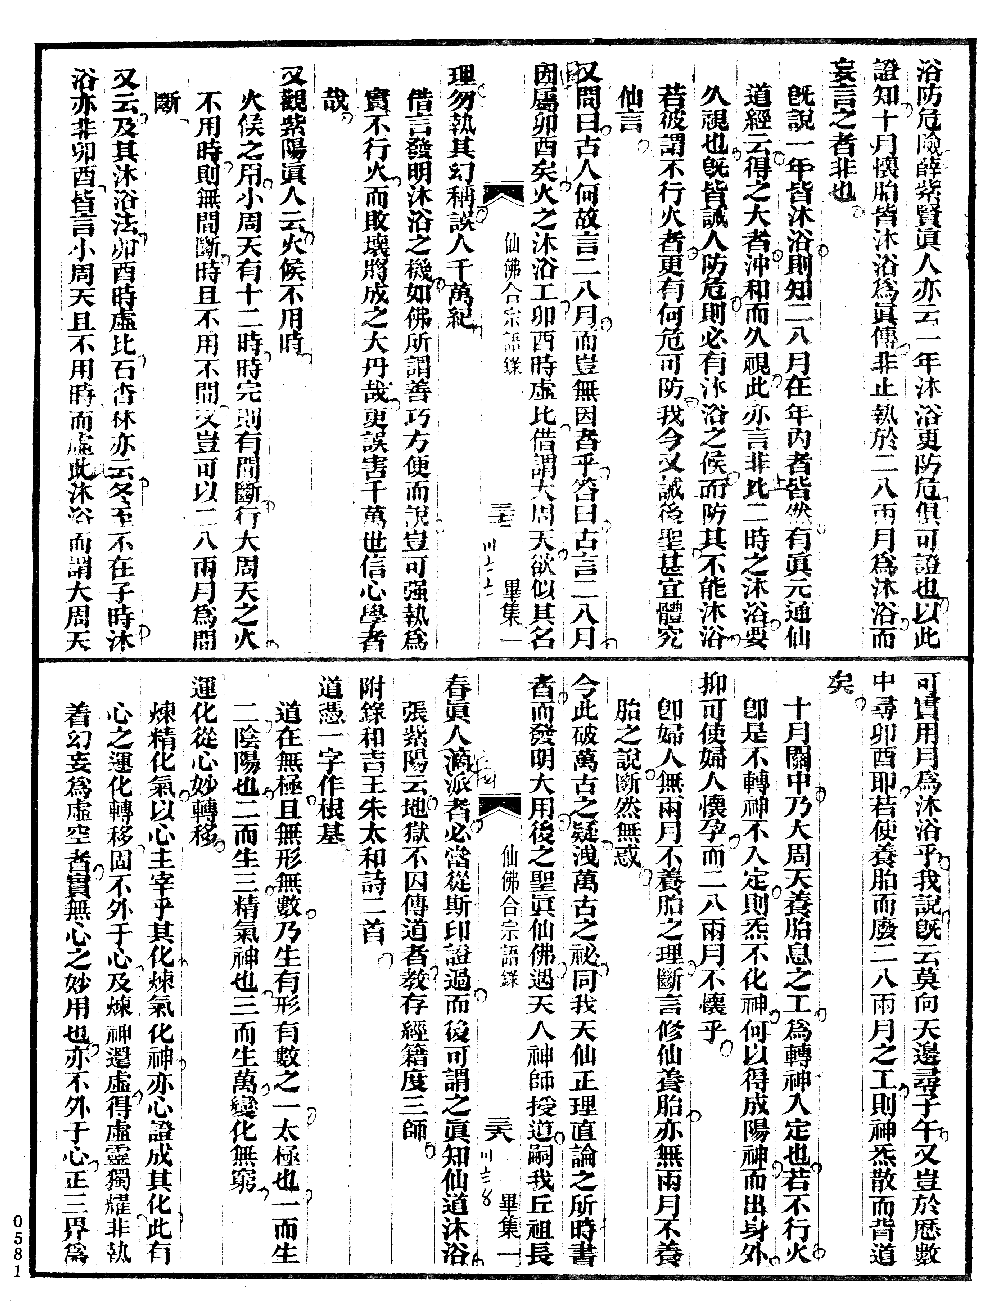 浴防危險薛紫賢眞人亦云一年沐浴更防危俱可證也以此
證知十月懷胎皆沐浴爲眞傳非止執於二八兩月爲沐浴而
妄言之者非也
旣說一年皆沐浴則知二八月在年内者皆然有眞元通仙
道經云得之大者沖和而久視此亦言非比二時之沐浴要
久視也旣皆誡人防危則必有沐浴之候而防其不能沐浴
若彼謂不行火者更有何危可防我今又誡後聖甚宜體究
仙言
又問曰古人何故言二八月而豈無因者乎答曰古言二八月
因屬卯酉矣火之沐浴工卯酉時虛比借謂大周天欲似其名
仙佛合宗語錄
三七
畢集一
理勿執其幻稱誤人千萬紀
借言發明沐浴之機如佛所謂善巧方便而說豈可强執爲
實不行火而敗壞將成之大丹哉更誤害千萬世信心學者
哉
又觀紫陽眞人云火候不用時
火候之用小周天有十二時時完則有間斷行大周天之火
不用時則無間斷時且不用不間又豈可以二八兩月爲間
斷
又云及其沐浴法卯酉時虛比石杏林亦云冬至不在子時沐
浴亦非卯酉皆言小周天且不用時而虛此沐浴而謂大周天
可實用月爲沐浴乎我說旣云莫向天邊尋子午又豈於歷數
中尋卯酉耶若使養胎而廢二八兩月之工則神炁散而背道
矣
十月關中乃大周天養胎息之工爲轉神入定也若不行火
卽是不轉神不入定則炁不化神何以得成陽神而出身外
抑可使婦人懷孕而二八兩月不懷乎
卽婦人無兩月不養胎之理斷言修仙養胎亦無兩月不養
胎之說斷然無惑
今此破萬古之疑洩萬古之祕同我天仙正理直論之所時書
者而發明大用後之聖眞仙佛遇天人神師授道嗣我丘祖長
仙佛合宗語錄
三八
畢集一
春眞人滴派者必當從斯印證過而後可謂之眞知仙道沐浴
張紫陽云地獄不囚傳道者教存經籍度三師
附錄和吉王朱太和詩二首
道憑一字作根基
道在無極且無形無數乃生有形有數之一太極也一而生
二陰陽也二而生三精氣神也三而生萬變化無窮
運化從心妙轉移
煉精化氣以心主宰乎其化煉氣化神亦心證成其化此有
心之運化轉移固不外于心及煉神還虛得虛靈獨耀非執
着幻妄爲虛空者實無心之妙用也亦不外于心正三界爲
0581